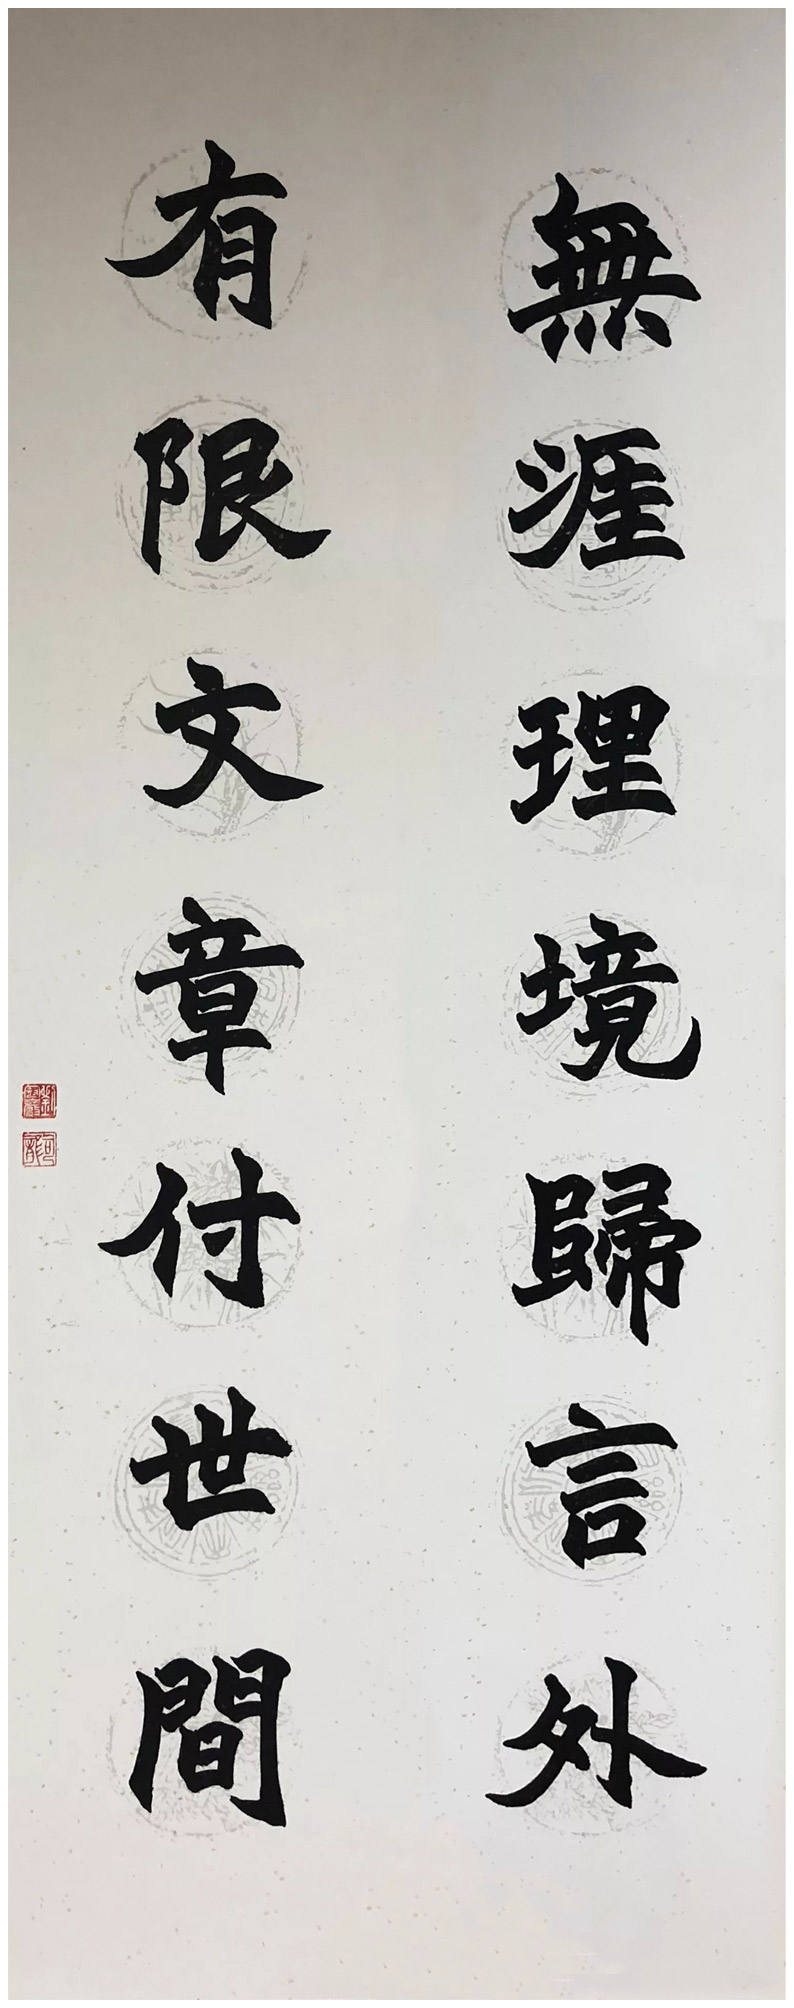 無涯理境歸言外
有限文章付世間